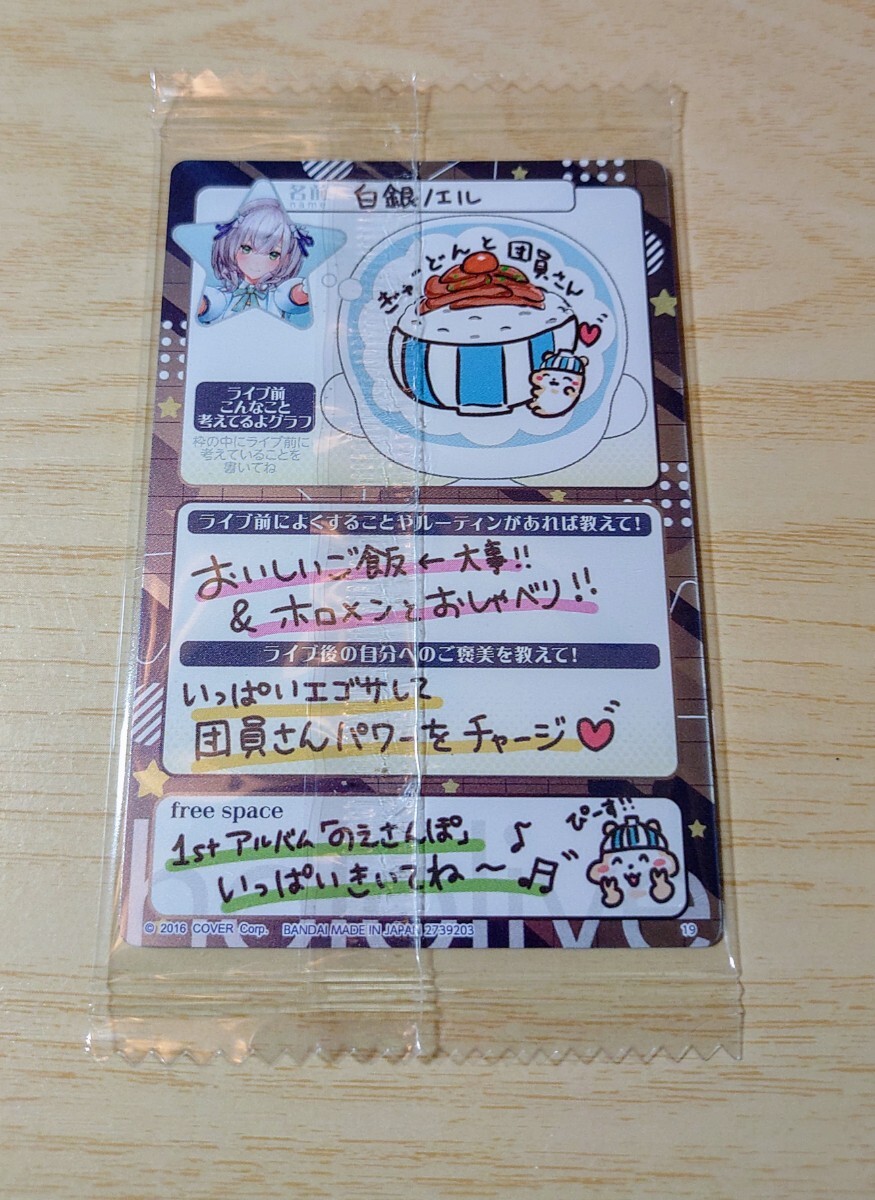 名前 白銀ノエル
name
ぎゅーどんと団員さん
ライブ前
こんなこと
考えてるよグラフ
枠の中にライブ前に
考えていることを
書いてね
ライブ前によくすることやルーティンがあれば教えて!
おいしいご飯←大事!!
& ホロメンとおしゃべり!!
ライブ後の自分へのご褒美を教えて!
いっぱいエゴサして
団員さんパワーをチャージ
free space
1stアルバム「のえさんぽ」♪
いっぱいきいてね〜♬
ぴーす!!
hololive
© 2016 COVER Corp. BANDAI MADE IN JAPAN 2739203
19